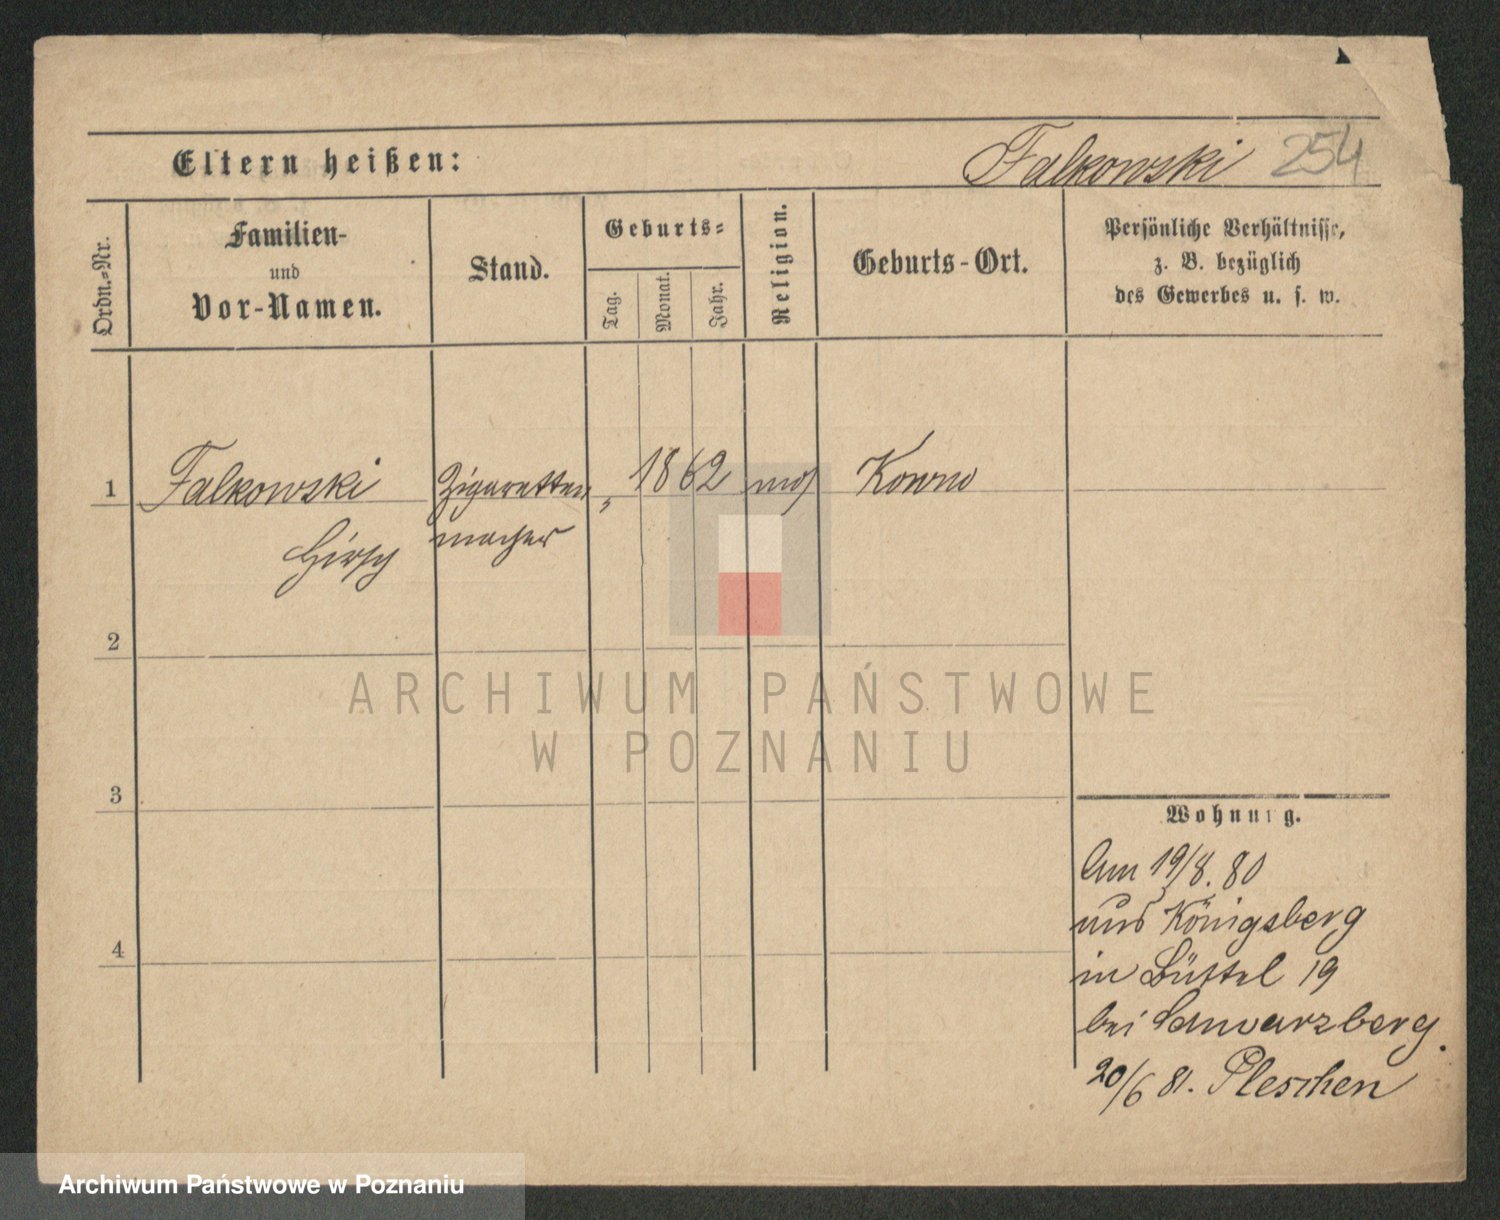 Eltern heißen:
Falkowski 254
Ordn.=Nr.
Familien-
und
Vor-Namen.
Stand.
Geburts=
Tag.
Monat.
Jahr.
Religion.
Geburts-Ort.
Persönliche Verhältnisse,
z. B. bezüglich
des Gewerbes u. s. w.
1 Falkowski Zigaretten „ 1862 mos Kowno
Hirsch macher
2
ARCHIWUM PAŃSTWOWE
W POZNANIU
3
Wohnung.
Am 19/8. 80
aus Königsberg
4
in Büttel 19
bei Schwarzberg.
20/6 81. Pleschen
Archiwum Państwowe w Poznaniu